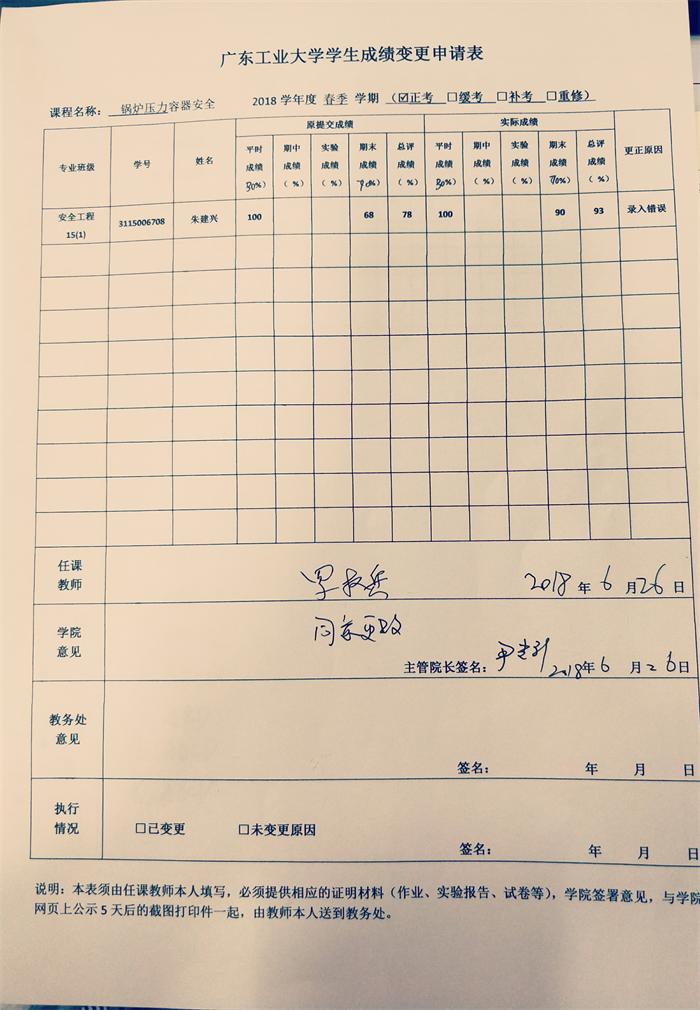 广东工业大学学生成绩变更申请表
课程名称： 锅炉压力容器安全 2018 学年度 春季 学期 （☑正考 □缓考 □补考 □重修）
专业班级 学号 姓名 原提交成绩 实际成绩 更正原因
平时成绩30%） 期中成绩（ %） 实验成绩（ %） 期末成绩70%） 总评成绩（ %） 平时成绩30%） 期中成绩（ %） 实验成绩（ %） 期末成绩70%） 总评成绩（ %）
安全工程15(1) 3115006708 朱建兴 100 68 78 100 90 93 录入错误
任课教师
2018 年 6 月26 日
学院意见
同意更改
主管院长签名： 2018年6 月26日
教务处意见
签名： 年 月 日
执行情况
□已变更 □未变更原因
签名： 年 月 日
说明：本表须由任课教师本人填写，必须提供相应的证明材料（作业、实验报告、试卷等），学院签署意见，与学院
网页上公示 5 天后的截图打印件一起，由教师本人送到教务处。